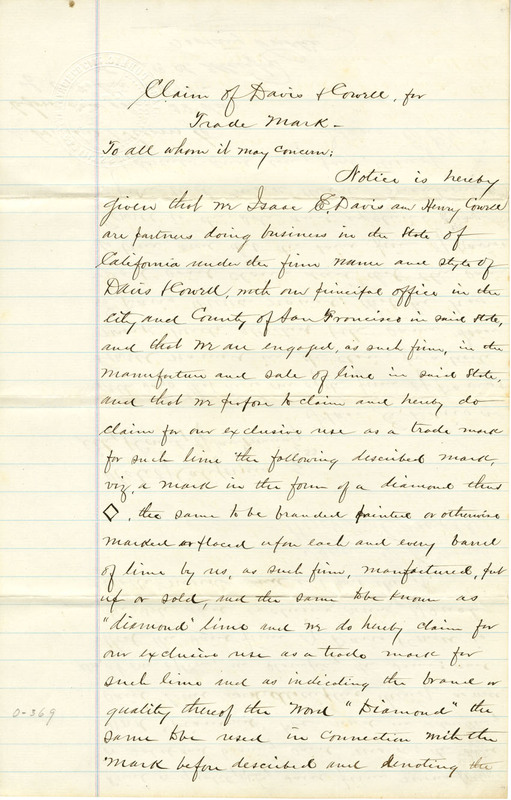 Claim of Davis & Cowell, for
Trade Mark -
To all whom it may concern:
Notice is hereby
given that we Isaac E. Davis and Henry Cowell
are partners doing business in the State of
California under the firm name and style of
Davis & Cowell, with our principal office in the
City and County of San Francisco in said State,
and that we are engaged, as such firm, in the
manufacture and sale of lime in said State,
and that we propose to claim and hereby do
claim for our exclusive use as a trade mark
for such lime the following described mark,
viz, a mark in the form of a diamond thus
◇, the same to be branded painted or otherwise
marked or placed upon each and every barrel
of lime by us, as such firm, manufactured, put
up or sold, and the same to be known as
"diamond" lime and we do hereby claim for
our exclusive use as a trade mark for
such lime and as indicating the brand or
quality thereof the word "Diamond" the
same to be used in connection with the
mark before described and denoting the
0-369